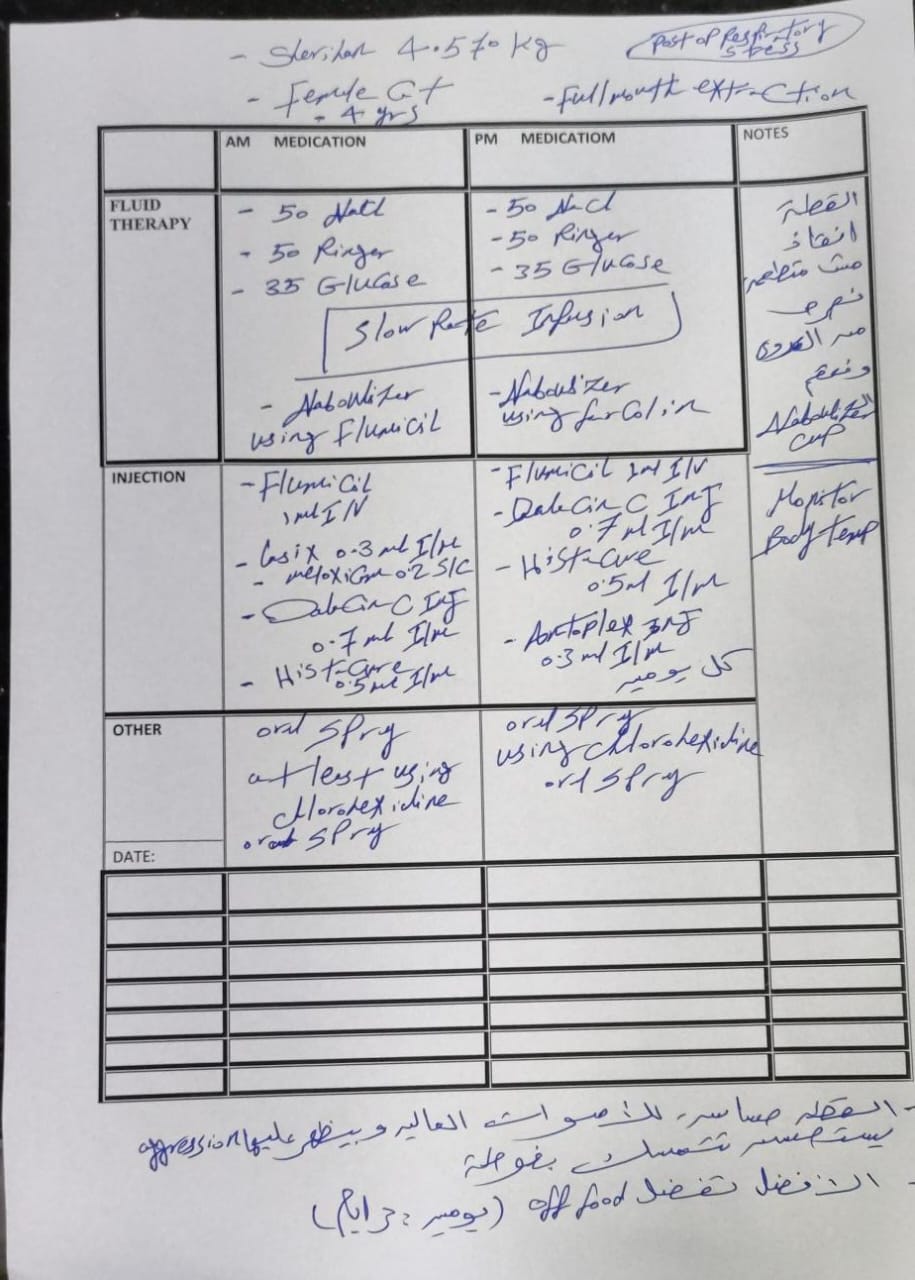 - Sherihan 4.570 kg
Post op Respiratory
stress
- Female Cat
- 4 yrs
- Full mouth extraction
AM MEDICATION
PM MEDICATIOM
NOTES
FLUID
THERAPY
- 50 NaCl
- 50 Ringer
- 35 Glucose
- 50 NaCl
- 50 Ringer
- 35 Glucose
Slow Rate Infusion
- Naboulizer
using Flumicil
- Naboulizer
using furcolin
القطة
انقاذ
مش متطعمه
نحرص
من العدوى
ونعقم
Naboulizer
cup
INJECTION
- Flumicil
1ml I/V
- Lasix 0.3 ml I/M
- meloxicam 0.2 S/C
- Dalacin C INJ
0.7 ml I/M
- Hist-Cure
0.5 ml I/M
- Flumicil 1ml I/V
- Dalacin C INJ
0.7 ml I/M
- Hist-Cure
0.5ml I/M
- Aortoplex INJ
0.3 ml I/M
كل يومين
Monitor
Body Temp
OTHER
oral spry
at least using
chlorohexidine
oral spry
oral spry
using chlorohexidine
oral spry
DATE:
- القطه حساسه للاصوات العاليه وبيظهر عليها aggression
يستحسن تتمسك بفوطة
- الافضل تفضل off food (يومين